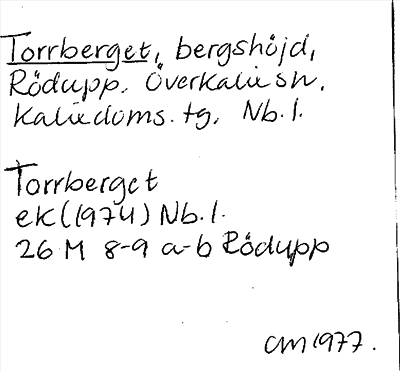 Torrberget, bergshöjd,
Rödupp. Överkalix sn.
Kalixdoms. tg. Nb. l.
Torrberget
ek (1974) Nb. l.
26 M 8-9 a-b Rödupp
CM 1977.